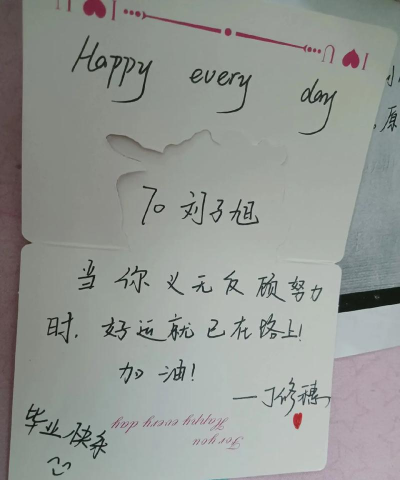 I ♥ U
I ♥ U
Happy every day
To 刘子旭
当你义无反顾努力
时,好运就已在路上!
加油!
—丁修穗
毕业快乐
For you
Happy every day
原